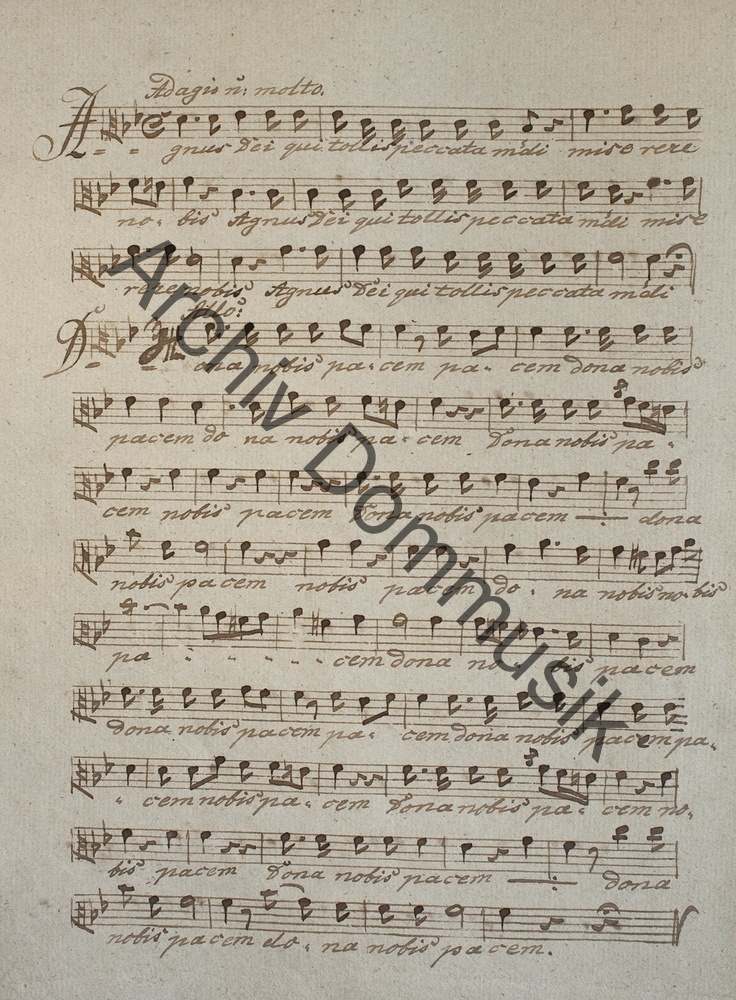 Adagio ñ: molto.
Agnus Dei qui tollis peccata mũdi miserere
no- bis Agnus Dei qui tollis peccata mũdi mise
rere nobis Agnus Dei qui tollis peccata mũdi
Allo:
Dona nobis pa- cem pa- cem dona nobis
pacem do na nobis pa- cem Dona nobis pa-
cem nobis pacem Dona nobis pacem —:— dona
nobis pacem nobis pacem do- na nobis no-bis
pa - - - - - cem dona no- bis pacem
dona nobis pacem pa- cem dona nobis pacem pa-
" cem nobis pa- cem Dona nobis pa- cem no-
bis pacem Dona nobis pacem —:— dona
nobis pacem do- na nobis pacem.
Archiv Dommusik